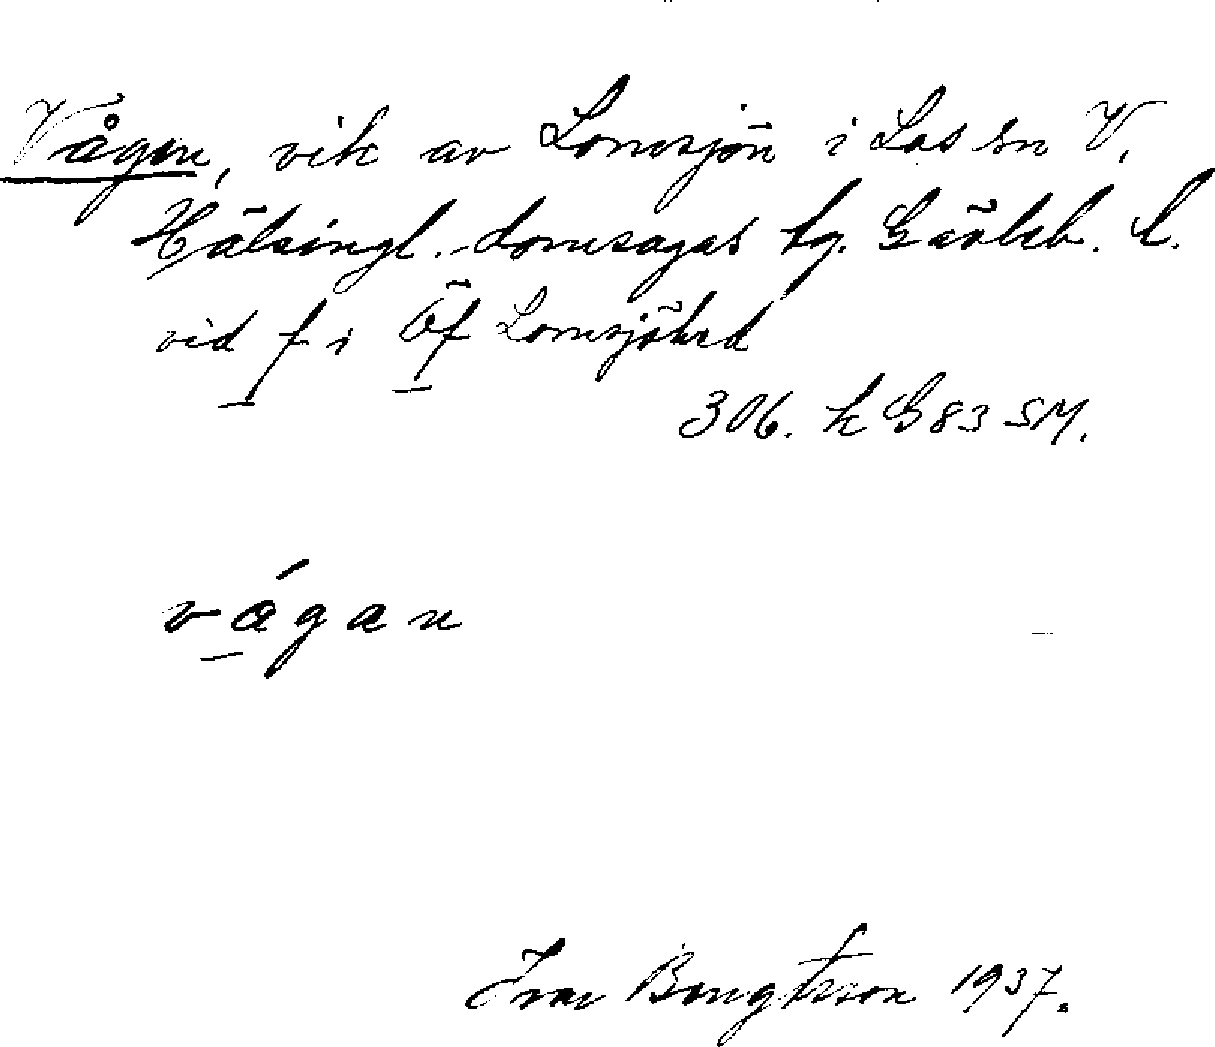 Vågen, vik av Lomsjön i Los sn V.
Hälsingl. domsagas tg. Gävleb. l.
vid f i Öf Lomsjöhed
306. k G 83 SM.
vågan
Ivar Bengtsson 1937.